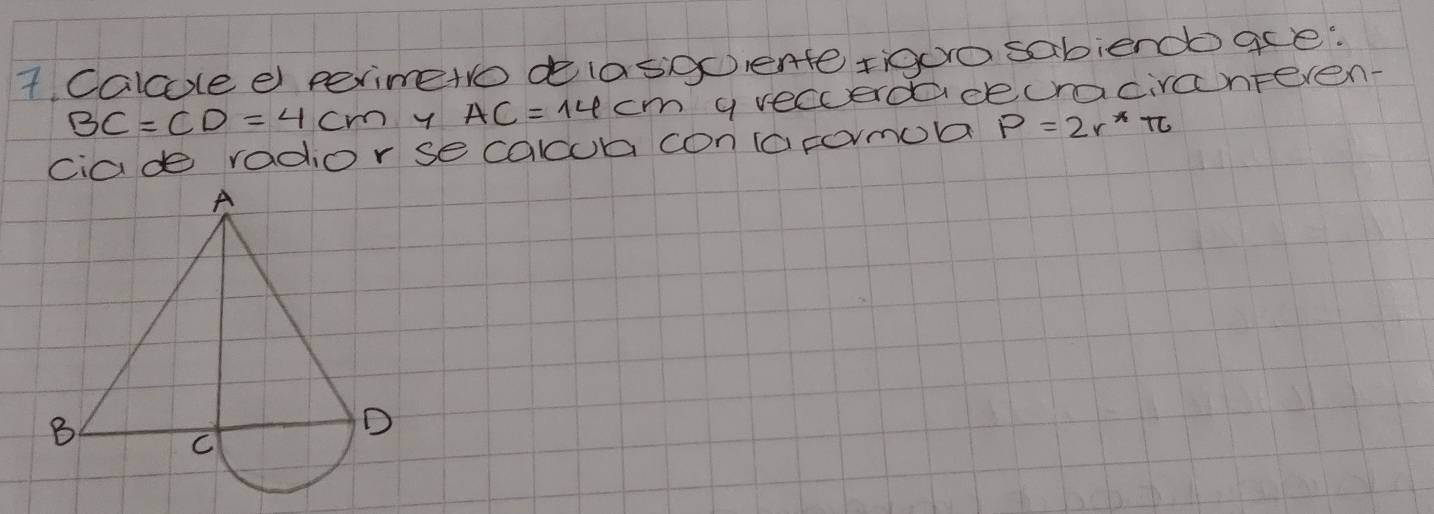 7. Calcule el perimetro de la siguiente figura sabiendo que:
BC = CD = 4 cm y AC = 14 cm y recuerda de una circunferen-
cia de radio r se calcula con la formula P = 2r * π
A
B
C
D